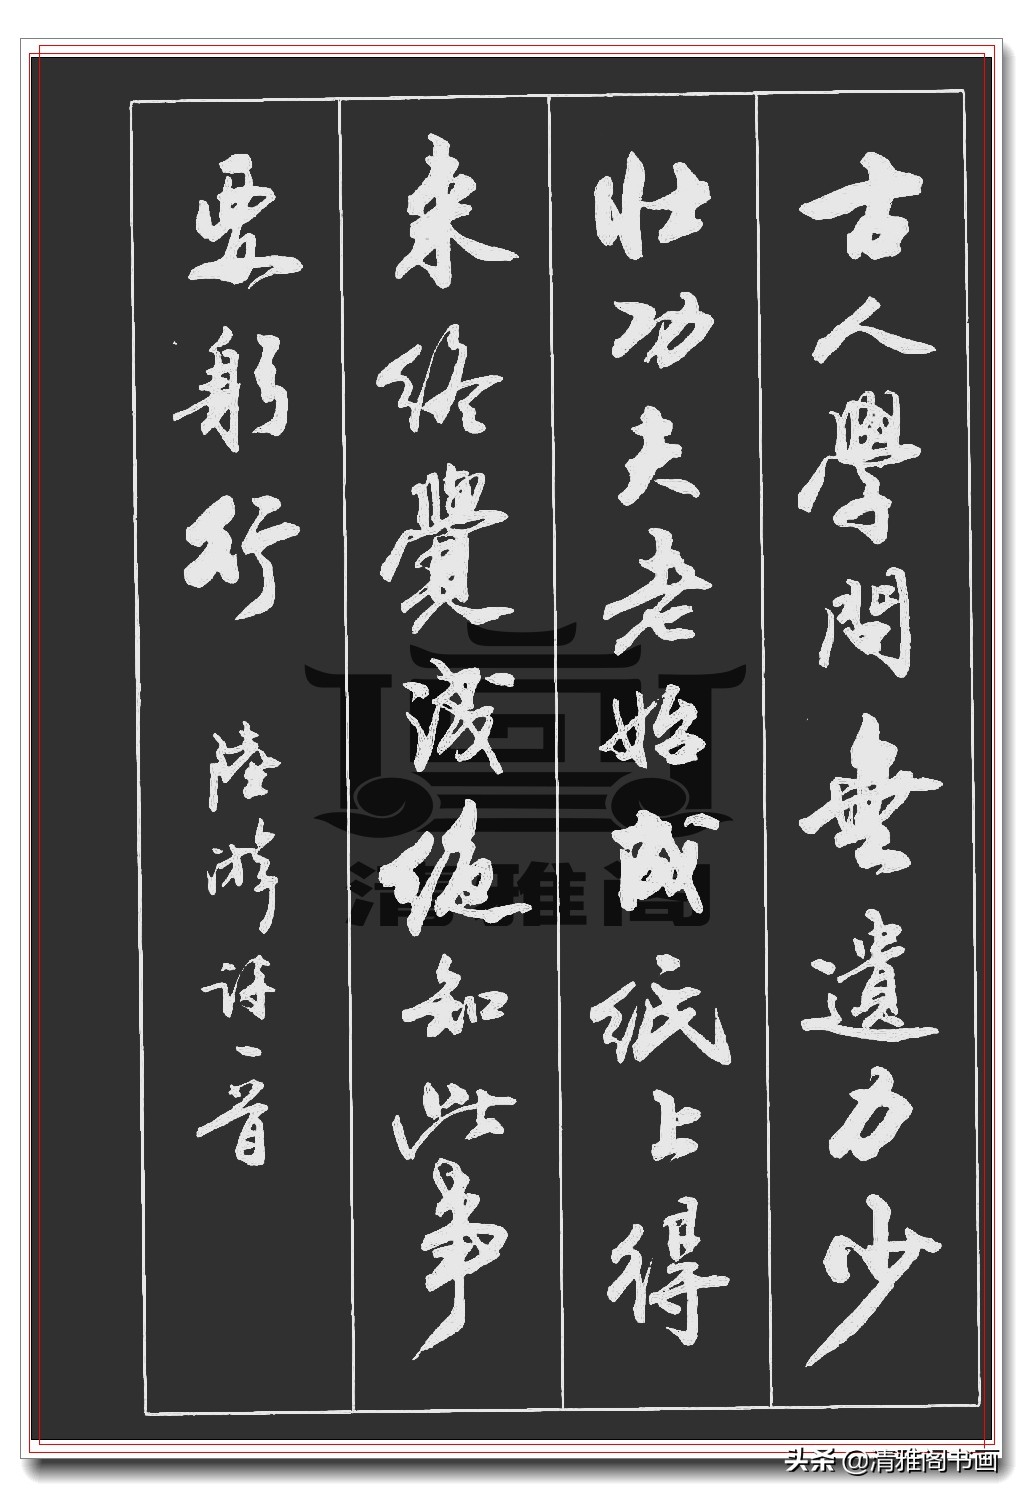 古人學問無遺力少
壯功夫老始成紙上得
来终覺淺絶知此事
要躬行
陸游诗一首
清雅阁
头条 @清雅阁书画